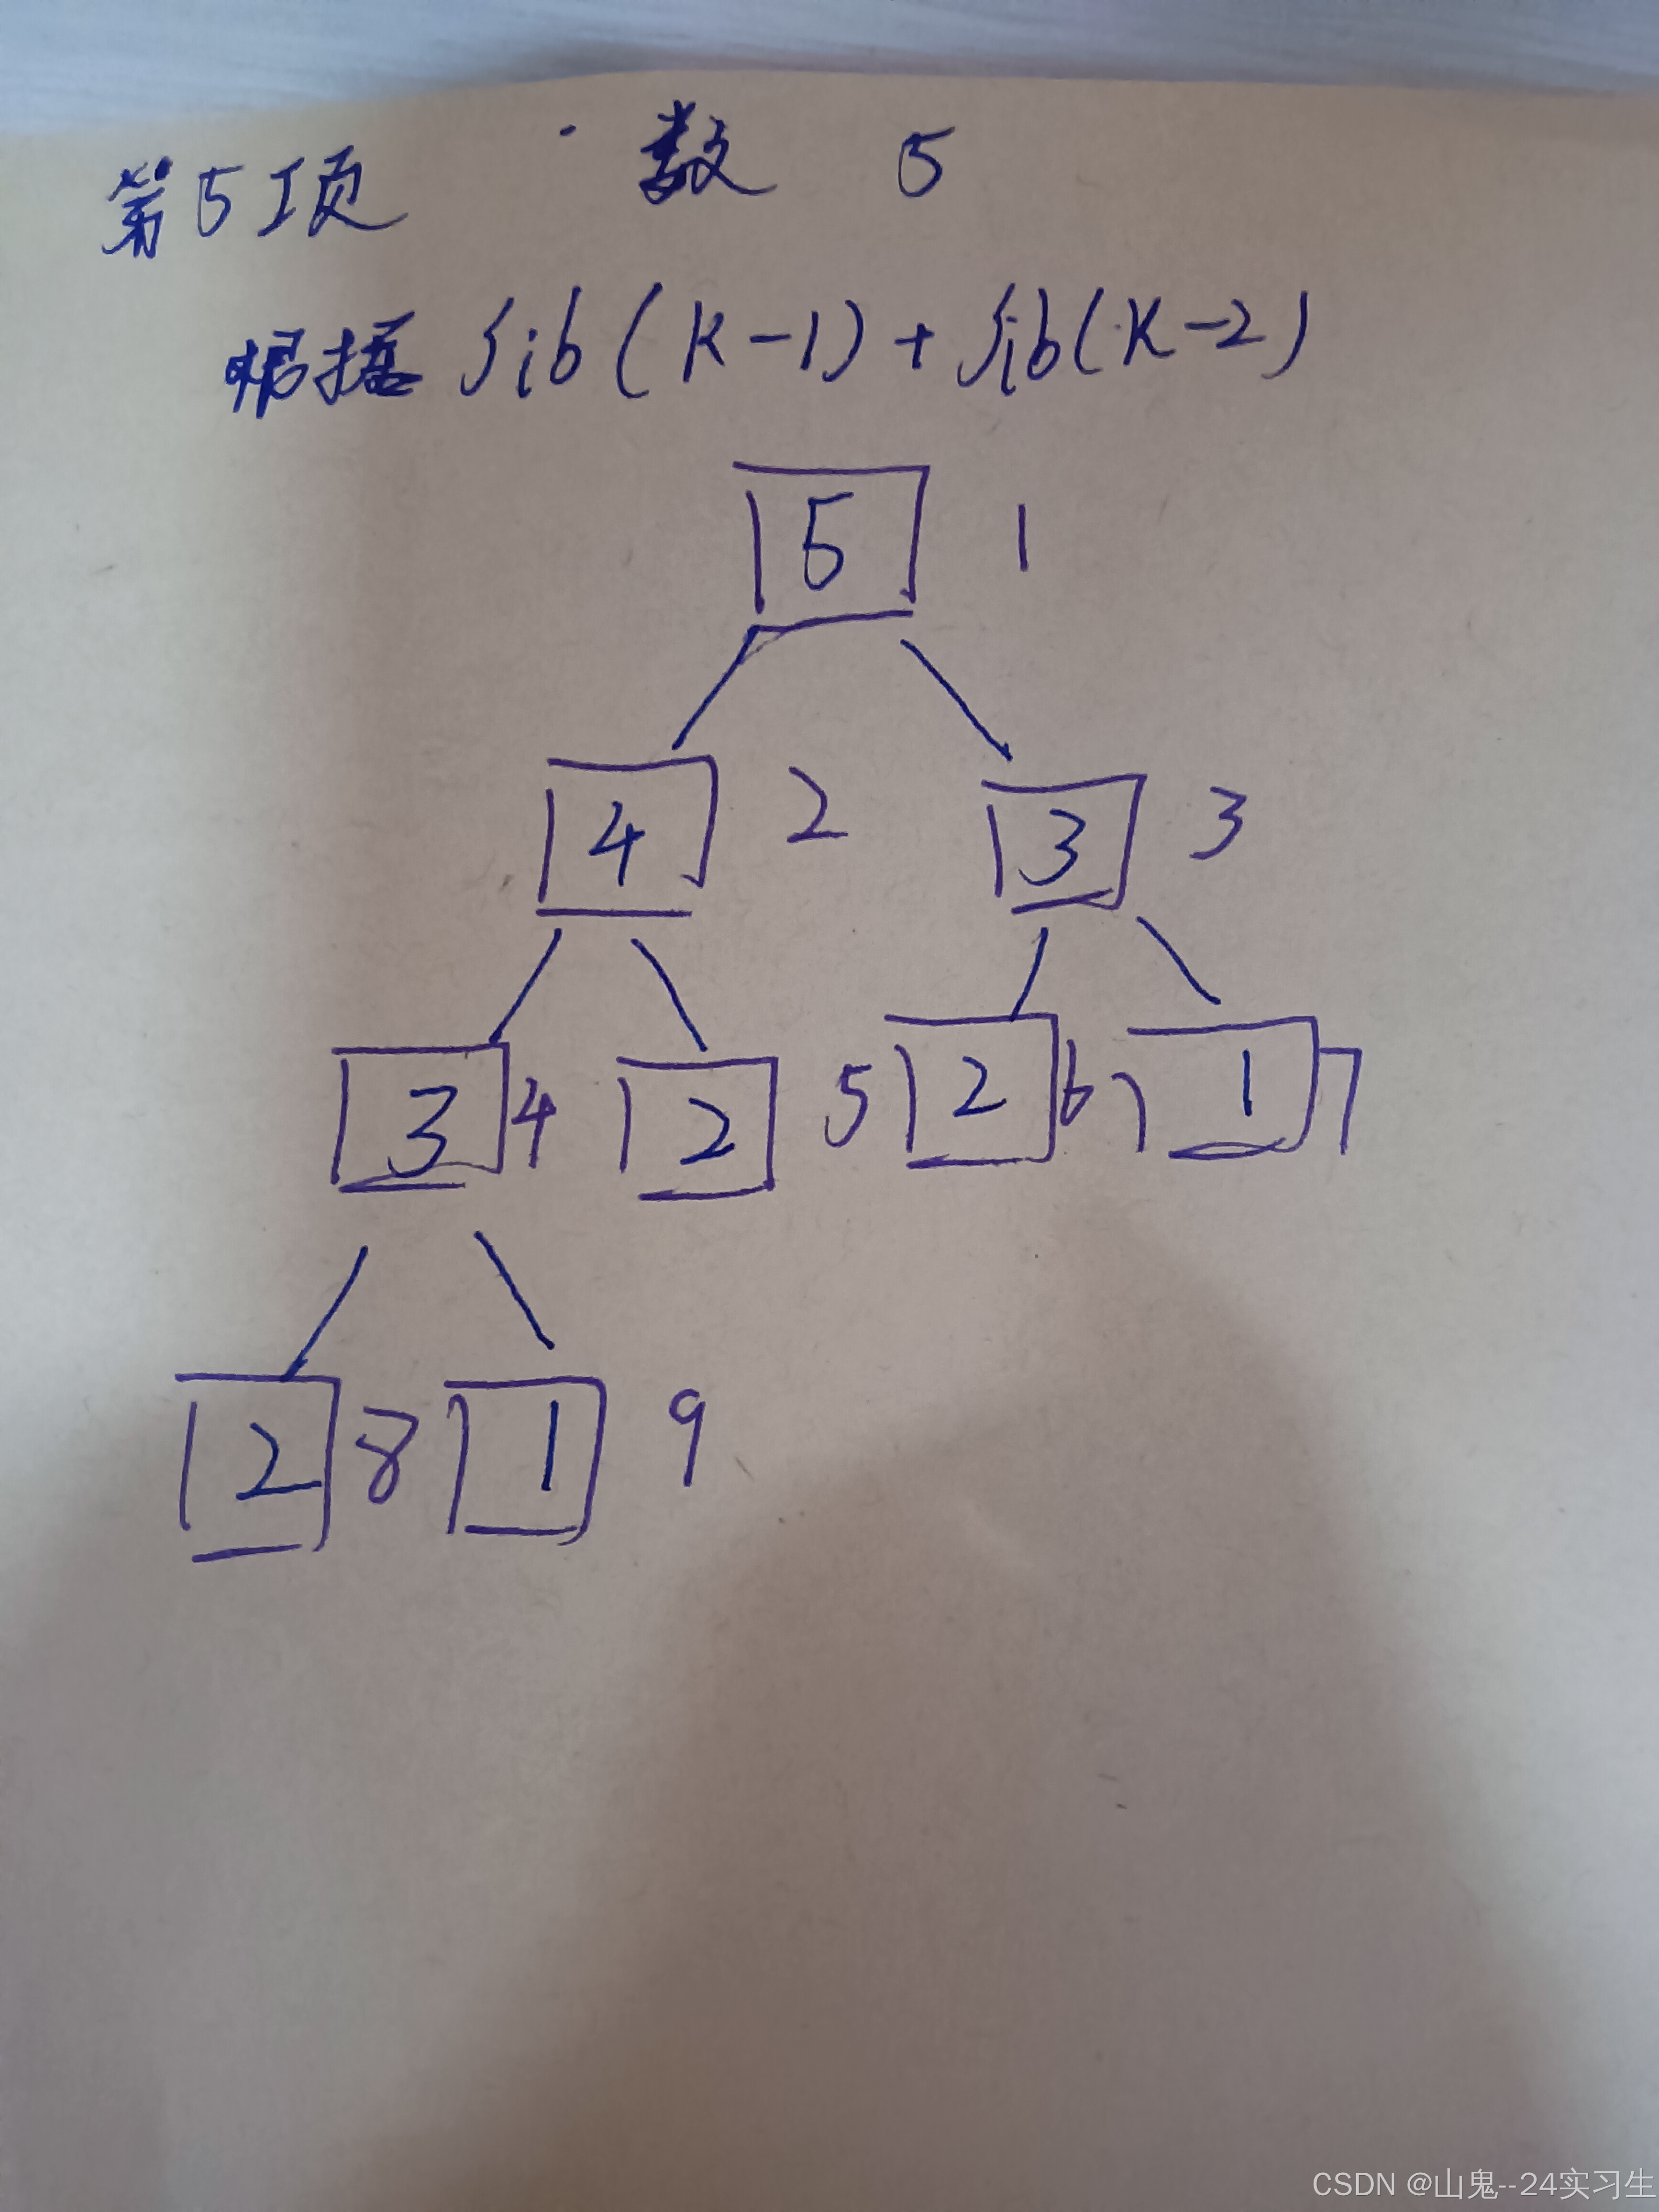 第5项 数 5
根据 fib(k-1)+fib(k-2)
5 1
4 2 3 3
3 4 2 5 2 6 1 7
2 8 1 9
CSDN @山鬼--24实习生